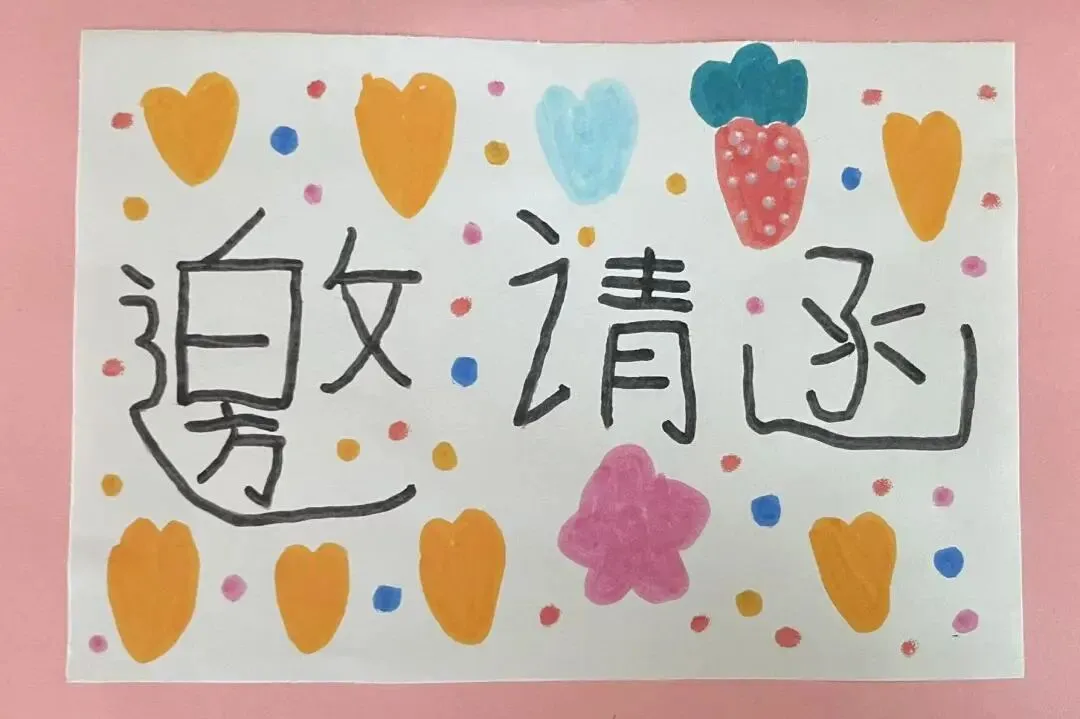 邀请函